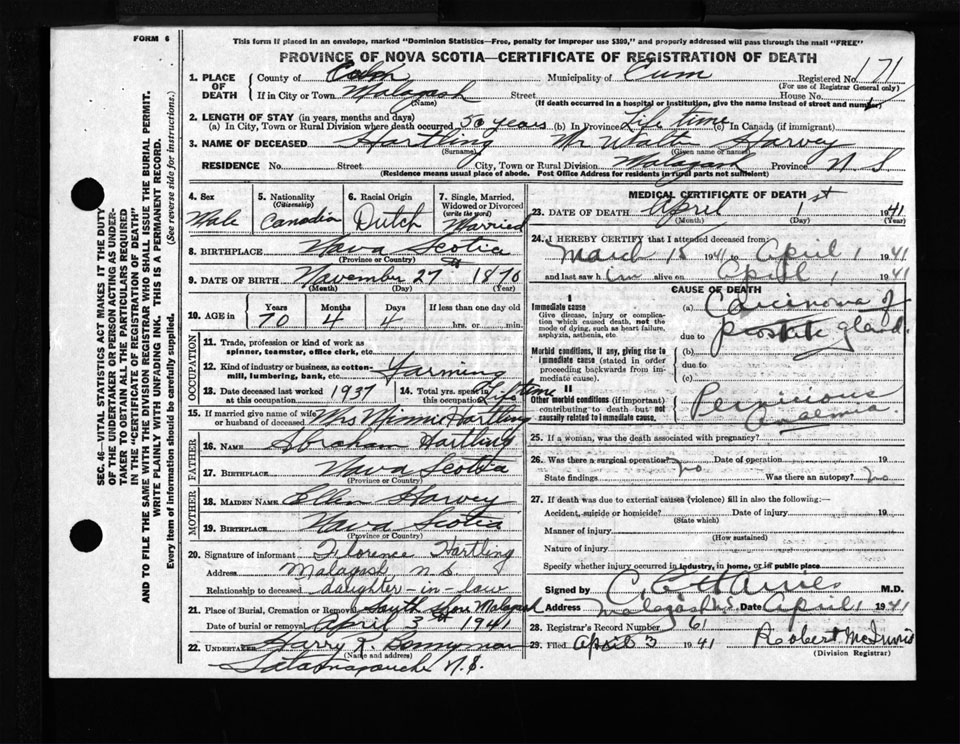 FORM 6
This form if placed in an envelope, marked "Dominion Statistics—Free, penalty for improper use $300," and properly addressed will pass through the mail "FREE"
PROVINCE OF NOVA SCOTIA—CERTIFICATE OF REGISTRATION OF DEATH
1. PLACE OF DEATH County of Municipality of Cum Registered No. 171
(For use of Registrar General only)
If in City or Town Malagash Street House No.
(Name) (If death occurred in a hospital or institution, give the name instead of street and number)
2. LENGTH OF STAY (in years, months and days)
(a) In City, Town or Rural Division where death occurred 50 years (b) In Province Life time (c) In Canada (if immigrant)
3. NAME OF DECEASED Hartling Mr Watt Harvey
(Surname) (Given name or names)
RESIDENCE No. Street City, Town or Rural Division Malagash Province N S
(Residence means usual place of abode. Post Office Address for residents in rural parts not sufficient)
4. Sex Male
5. Nationality (Citizenship) Canadian
6. Racial Origin Dutch
7. Single, Married, Widowed or Divorced (write the word) Married
8. BIRTHPLACE Nova Scotia
(Province or Country)
9. DATE OF BIRTH November 27th 1870
(Month) (Day) (Year)
10. AGE in Years 70 Months 4 Days 4 If less than one day old hrs. or min.
OCCUPATION
11. Trade, profession or kind of work as spinner, teamster, office clerk, etc.
12. Kind of industry or business, as cotton-mill, lumbering, bank, etc. Farming
13. Date deceased last worked at this occupation 1937 14. Total yrs. spent in this occupation Lifetime
15. If married give name of wife or husband of deceased Mrs Minnie Hartling
FATHER
16. NAME Abraham Hartling
17. BIRTHPLACE Nova Scotia
(Province or Country)
MOTHER
18. MAIDEN NAME Ellen Harvey
19. BIRTHPLACE Nova Scotia
(Province or Country)
20. Signature of informant Florence Hartling
Address Malagash N S
Relationship to deceased daughter in law
21. Place of Burial, Cremation or Removal South Shore Malagash
Date of burial or removal April 3rd 1941
22. UNDERTAKER Harry R.
(Name and address)
Tatamagouche N.S.
MEDICAL CERTIFICATE OF DEATH
23. DATE OF DEATH April 1st 1941
(Month) (Day)
24. I HEREBY CERTIFY that I attended deceased from:
March 18 1941 to April 1 1941
and last saw him alive on April 1 1941
CAUSE OF DEATH
I
Immediate cause (a) Carcinoma of
Give disease, injury or complication which caused death, not the mode of dying, such as heart failure, asphyxia, asthenia, etc. due to prostate gland.
Morbid conditions, if any, giving rise to immediate cause (stated in order proceeding backwards from immediate cause). (b) due to (c)
II
Other morbid conditions (if important) contributing to death but not causally related to immediate cause. Pernicious Anaemia.
25. If a woman, was the death associated with pregnancy?
26. Was there a surgical operation? no Date of operation 19
State findings Was there an autopsy? no
27. If death was due to external causes (violence) fill in also the following:—
Accident, suicide or homicide? Date of injury 19
(State which)
Manner of injury
(How sustained)
Nature of injury
Specify whether injury occurred in industry, in home, or in public place
Signed by M.D.
Address Malagash Date April 1 1941
28. Registrar's Record Number 61
29. Filed April 3 1941 Robert
(Division Registrar)
SEC. 46—VITAL STATISTICS ACT MAKES IT THE DUTY
OF THE UNDERTAKER OR PERSON ACTING AS UNDER-
TAKER TO OBTAIN ALL THE PARTICULARS REQUIRED
IN THE "CERTIFICATE OF REGISTRATION OF DEATH"
AND TO FILE THE SAME WITH THE DIVISION REGISTRAR WHO SHALL ISSUE THE BURIAL PERMIT.
WRITE PLAINLY WITH UNFADING INK. THIS IS A PERMANENT RECORD.
Every item of Information should be carefully supplied. (See reverse side for instructions.)